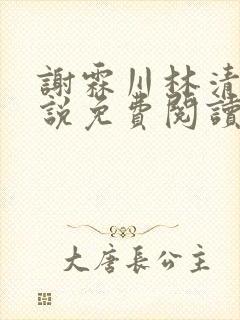 謝霖川林清
說免費閱讀
大唐長公主